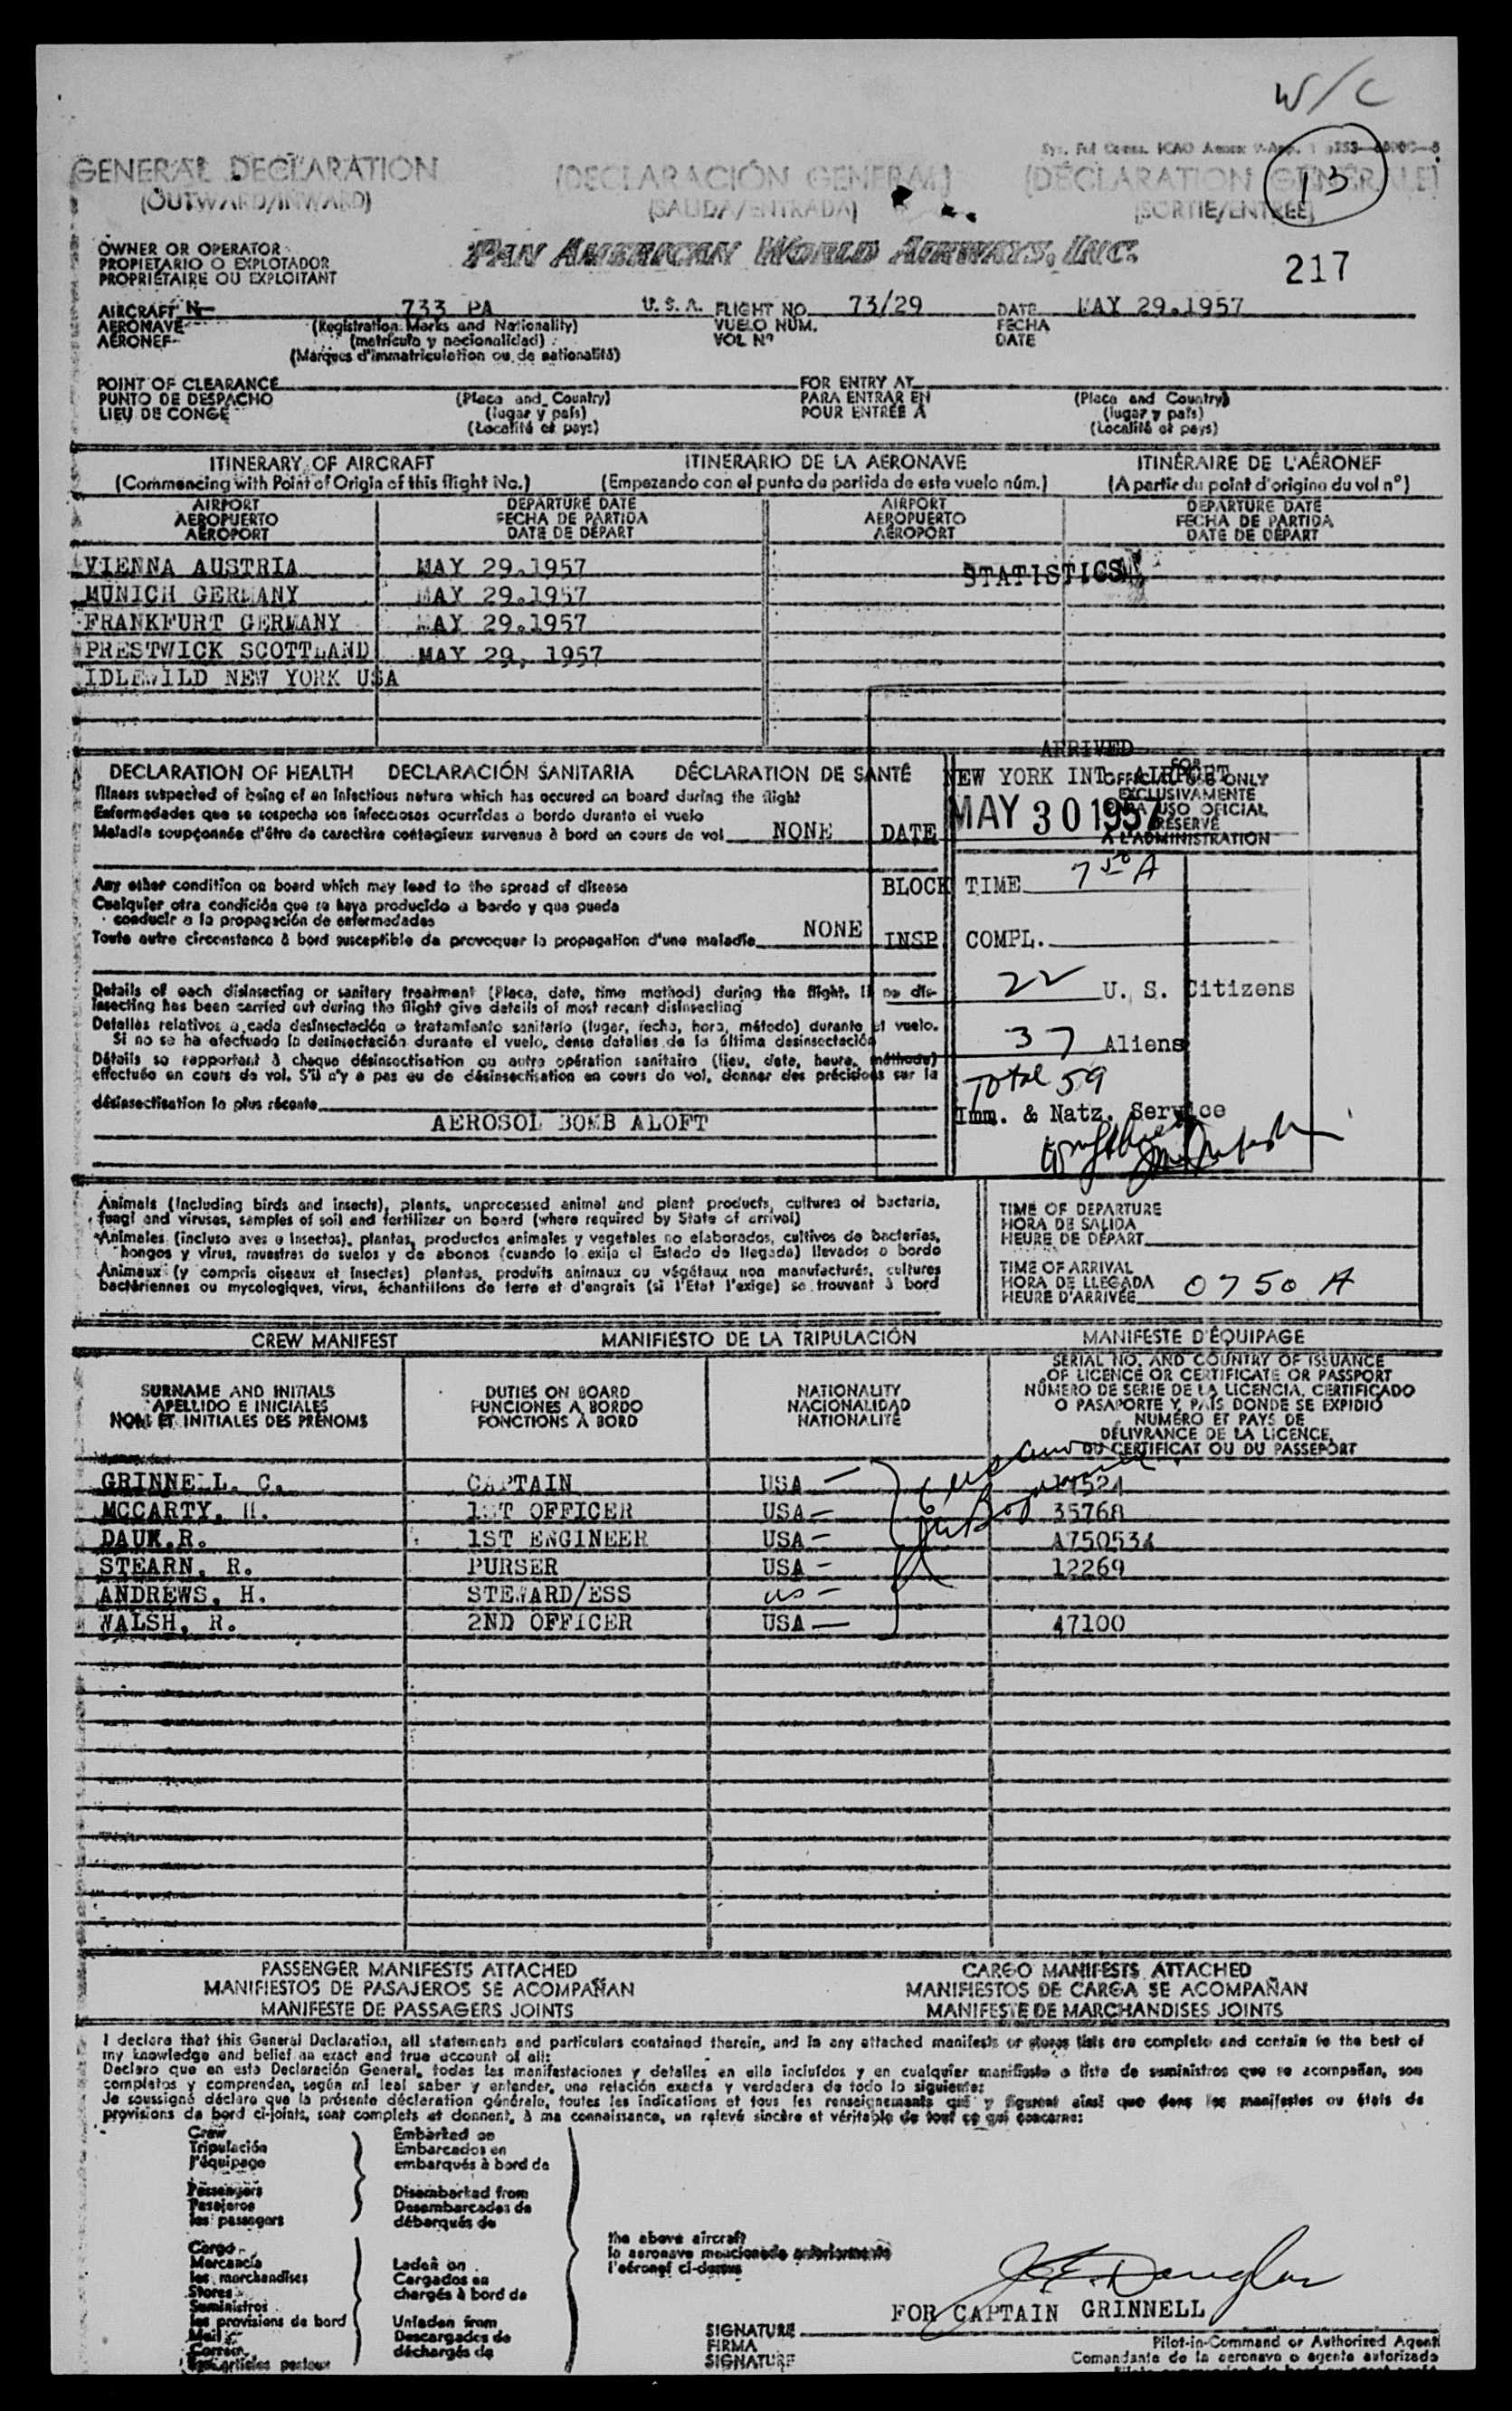 W/C
GENERAL DECLARATION (DECLARACIÓN GENERAL) (DÉCLARATION GÉNÉRALE)
(OUTWARD/INWARD) (SALIDA/ENTRADA) (SORTIE/ENTRÉE)
13
OWNER OR OPERATOR
PROPIETARIO O EXPLOTADOR
PROPRIÉTAIRE OU EXPLOITANT
PAN AMERICAN WORLD AIRWAYS, INC.
217
AIRCRAFT N 733 PA U.S.A. FLIGHT NO. 73/29 DATE MAY 29.1957
AERONAVE (Registration Marks and Nationality) VUELO NÚM. FECHA
AÉRONEF (matrícula y nacionalidad) VOL Nº DATE
(Marques d'immatriculation ou de nationalité)
POINT OF CLEARANCE FOR ENTRY AT
PUNTO DE DESPACHO (Place and Country) PARA ENTRAR EN (Place and Country)
LIEU DE CONGÉ (lugar y país) POUR ENTRÉE À (lugar y país)
(Localité et pays) (Localité et pays)
ITINERARY OF AIRCRAFT ITINERARIO DE LA AERONAVE ITINÉRAIRE DE L'AÉRONEF
(Commencing with Point of Origin of this flight No.) (Empezando con el punto de partida de este vuelo núm.) (A partir du point d'origine du vol nº)
AIRPORT DEPARTURE DATE AIRPORT DEPARTURE DATE
AEROPUERTO FECHA DE PARTIDA AEROPUERTO FECHA DE PARTIDA
AÉROPORT DATE DE DÉPART AÉROPORT DATE DE DÉPART
VIENNA AUSTRIA MAY 29.1957 STATISTICS
MUNICH GERMANY MAY 29.1957
FRANKFURT GERMANY MAY 29.1957
PRESTWICK SCOTTLAND MAY 29, 1957
IDLEWILD NEW YORK USA
ARRIVED
DECLARATION OF HEALTH DECLARACIÓN SANITARIA DÉCLARATION DE SANTÉ
NEW YORK INT. AIRPORT
FOR OFFICIAL USE ONLY
EXCLUSIVAMENTE
PARA USO OFICIAL
RÉSERVÉ
À L'ADMINISTRATION
Illness suspected of being of an infectious nature which has occured on board during the flight
Enfermedades que se sospecha son infecciosas ocurridas a bordo durante el vuelo
Maladie soupçonnée d'être de caractère contagieux survenue à bord en cours de vol NONE
DATE MAY 30 1957
Any other condition on board which may lead to the spread of disease
Cualquier otra condición que se haya producido a bordo y que pueda
conducir a la propagación de enfermedades
Toute autre circonstance à bord susceptible de provoquer la propagation d'une maladie NONE
BLOCK TIME 7 50 A
INSP COMPL.
Details of each disinsecting or sanitary treatment (Place, date, time method) during the flight. If no dis-
insecting has been carried out during the flight give details of most recent disinsecting
Detalles relativos a cada desinsectación o tratamiento sanitario (lugar, fecha, hora, método) durante el vuelo.
Si no se ha efectuado la desinsectación durante el vuelo, dense detalles de la última desinsectación
Détails se rapportant à chaque désinsectisation ou autre opération sanitaire (lieu, date, heure, méthode)
effectuée en cours de vol. S'il n'y a pas eu de désinsectisation en cours de vol, donner des précisions sur la
désinsectisation la plus récente
AEROSOL BOMB ALOFT
22 U. S. Citizens
37 Aliens
Total 59
Imm. & Natz. Service
Animals (including birds and insects), plants, unprocessed animal and plant products, cultures of bacteria,
fungi and viruses, samples of soil and fertilizer on board (where required by State of arrival)
Animales (incluso aves e insectos), plantas, productos animales y vegetales no elaborados, cultivos de bacterias,
hongos y virus, muestras de suelos y de abonos (cuando lo exija el Estado de llegada) llevados a bordo
Animaux (y compris oiseaux et insectes) plantes, produits animaux ou végétaux non manufacturés, cultures
bactériennes ou mycologiques, virus, échantillons de terre et d'engrais (si l'Etat l'exige) se trouvant à bord
TIME OF DEPARTURE
HORA DE SALIDA
HEURE DE DÉPART
TIME OF ARRIVAL
HORA DE LLEGADA
HEURE D'ARRIVÉE 0750 A
CREW MANIFEST MANIFIESTO DE LA TRIPULACIÓN MANIFESTE D'ÉQUIPAGE
SURNAME AND INITIALS
APELLIDO E INICIALES
NOM ET INITIALES DES PRÉNOMS
DUTIES ON BOARD
FUNCIONES A BORDO
FONCTIONS À BORD
NATIONALITY
NACIONALIDAD
NATIONALITÉ
SERIAL NO. AND COUNTRY OF ISSUANCE
OF LICENCE OR CERTIFICATE OR PASSPORT
NÚMERO DE SERIE DE LA LICENCIA, CERTIFICADO
O PASAPORTE Y PAÍS DONDE SE EXPIDIÓ
NUMÉRO ET PAYS DE
DÉLIVRANCE DE LA LICENCE,
DU CERTIFICAT OU DU PASSEPORT
GRINNELL. C. CAPTAIN USA
MCCARTY, H. 1ST OFFICER USA 35768
DAUK.R. 1ST ENGINEER USA A750534
STEARN, R. PURSER USA 12269
ANDREWS, H. STEWARD/ESS us
WALSH, R. 2ND OFFICER USA 47100
PASSENGER MANIFESTS ATTACHED CARGO MANIFESTS ATTACHED
MANIFIESTOS DE PASAJEROS SE ACOMPAÑAN MANIFIESTOS DE CARGA SE ACOMPAÑAN
MANIFESTE DE PASSAGERS JOINTS MANIFESTE DE MARCHANDISES JOINTS
I declare that this General Declaration, all statements and particulars contained therein, and in any attached manifests or stores lists are complete and contain to the best of
my knowledge and belief an exact and true account of all:
Declaro que en esta Declaración General, todas las manifestaciones y detalles en ella incluídos y en cualquier manifiesto o lista de suministros que se acompañan, son
completos y comprenden, según mi leal saber y entender, una relación exacta y verdadera de todo lo siguiente:
Je soussigné déclare que la présente déclaration générale, toutes les indications et tous les renseignements qui y figurent ainsi que dans les manifestes ou états de
provisions de bord ci-joints, sont complets et donnent, à ma connaissance, un relevé sincère et véritable de tout ce qui concerne:
Crew Embarked on
Tripulación Embarcados en
l'équipage embarqués à bord de
Passengers Disembarked from
Pasajeros Desembarcados de
les passagers débarqués de
the above aircraft
la aeronave mencionada anteriormente
l'aéronef ci-dessus
Cargo
Mercancía Laden on
les marchandises Cargados en
Stores chargés à bord de
Suministros
les provisions de bord Unladen from
Mail Descargados de
Correo déchargés de
les articles postaux
J.E. Douglas
FOR CAPTAIN GRINNELL
SIGNATURE
FIRMA
SIGNATURE
Pilot-in-Command or Authorized Agent
Comandante de la aeronave o agente autorizado